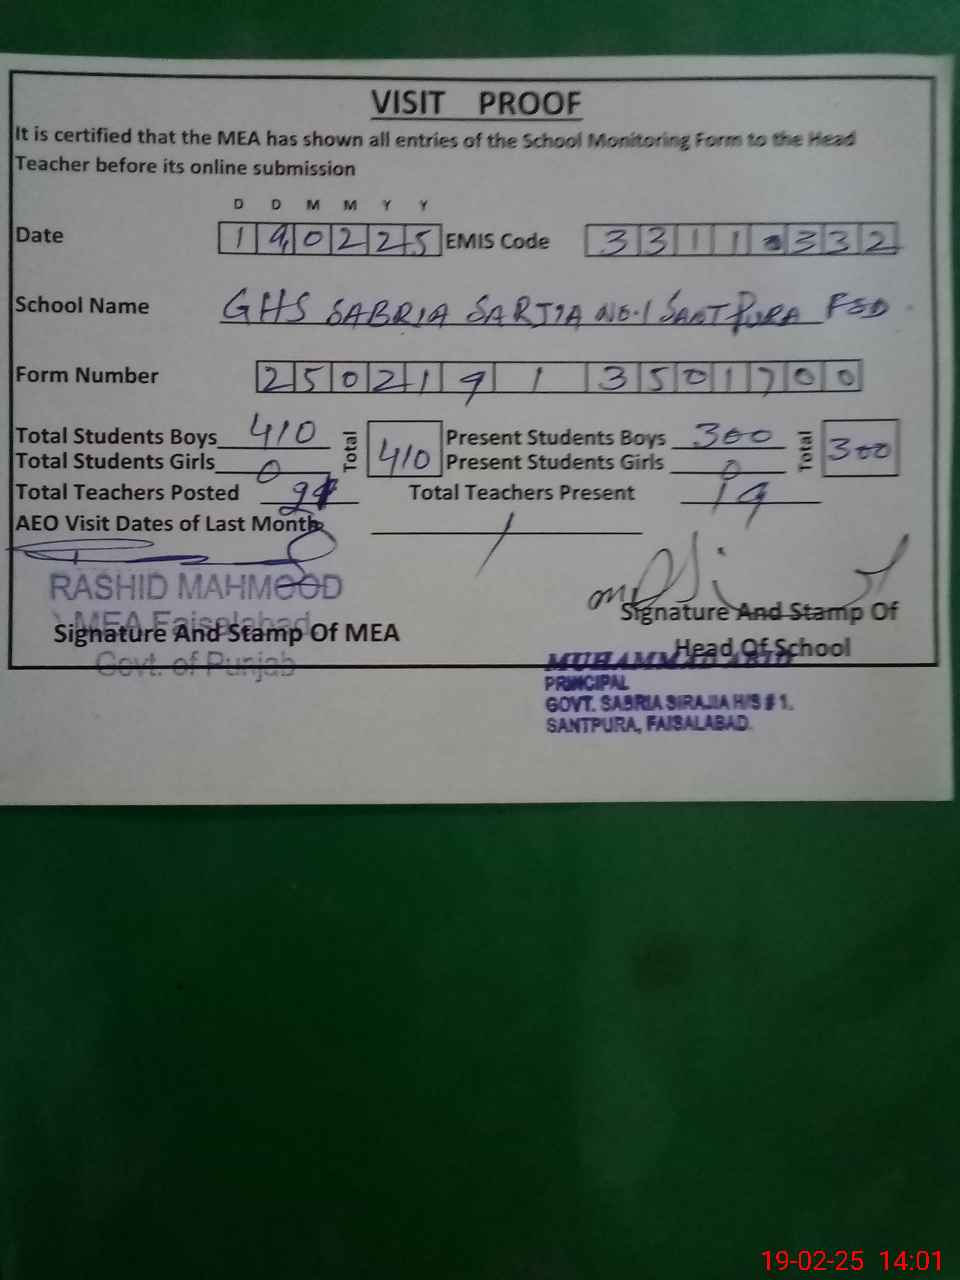 VISIT PROOF
It is certified that the MEA has shown all entries of the School Monitoring Form to the Head
Teacher before its online submission
D D M M Y Y
Date 1 9 0 2 2 5 EMIS Code 3 3 1 1 3 3 2
School Name GHS SABRIA SARJIA NO.1 SANTPURA FSD
Form Number 2 5 0 2 1 9 1 3 5 0 1 7 0 0
Total Students Boys 410 Total 410 Present Students Boys 300 Total 300
Total Students Girls 0 Present Students Girls 0
Total Teachers Posted Total Teachers Present 19
AEO Visit Dates of Last Month /
RASHID MAHMOOD
MEA Faisalabad
Signature And Stamp Of MEA
Govt. of Punjab
Signature And Stamp Of
Head Of School
MUHAMMAD ABID
PRINCIPAL
GOVT. SABRIA SIRAJIA H/S # 1.
SANTPURA, FAISALABAD.
19-02-25 14:01